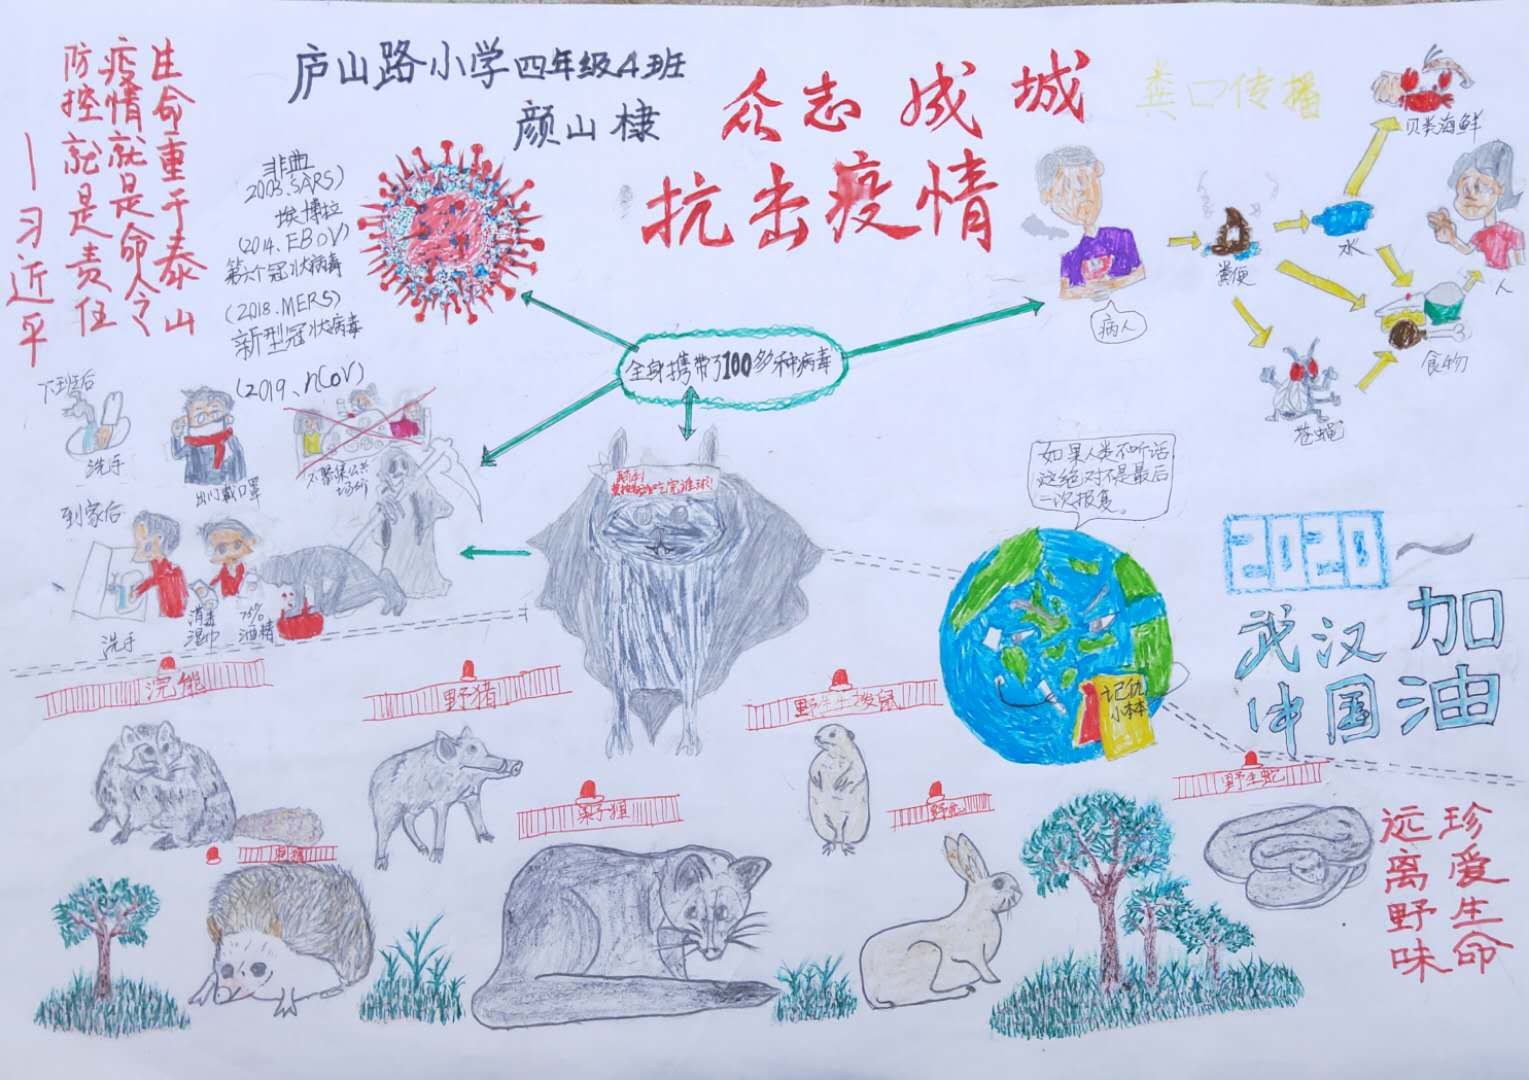 生命重于泰山
疫情就是命令
防控就是责任
—习近平
庐山路小学四年级4班
颜山棣
众志成城
抗击疫情
粪口传播
非典
2003.SARS)
埃博拉
(2014.EBOV)
第六个冠状病毒
(2018.MERS)
新型冠状病毒
(2019、nCoV)
贝类海鲜
水
人
粪便
病人
食物
苍蝇
全身携带了100多种病毒
洗手
出门戴口罩
到家后
洗手
消毒
湿巾
75%
酒精
如果人类不听话
这绝对不是最后
一次报复。
记仇
小本本
2020~
武汉加油
中国
浣熊
野猪
果子狸
野兔
野生蛇
珍爱生命
远离野味